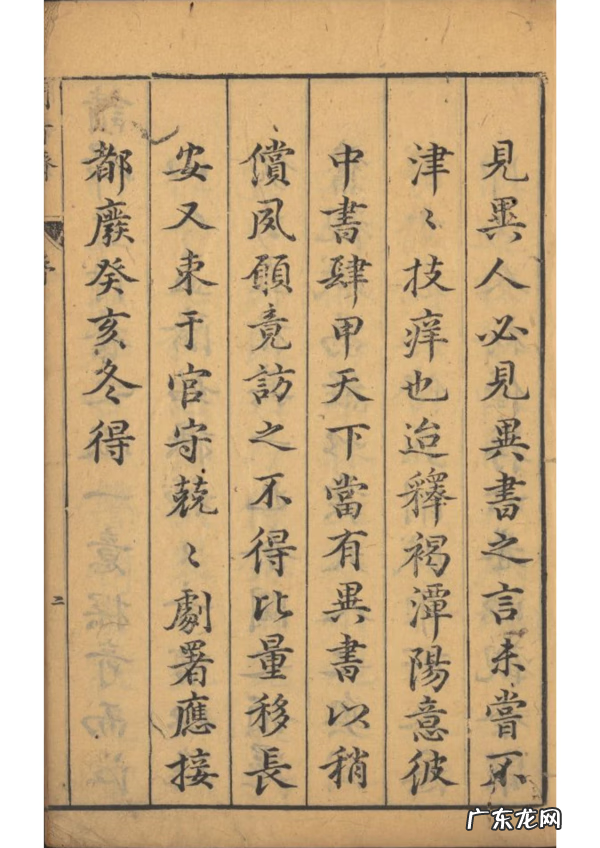 見異人必見異書之言未嘗不
津〻技痒也迨釋褐潭陽意彼
中書肆甲天下當有異書以稍
償夙願竟訪之不得比量移長
安又束于官守兢〻劇署應接
都廢癸亥冬得
二
广东龙网